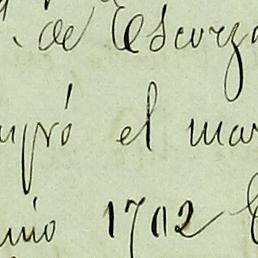 de Escorza
upró el mar
unio 1702